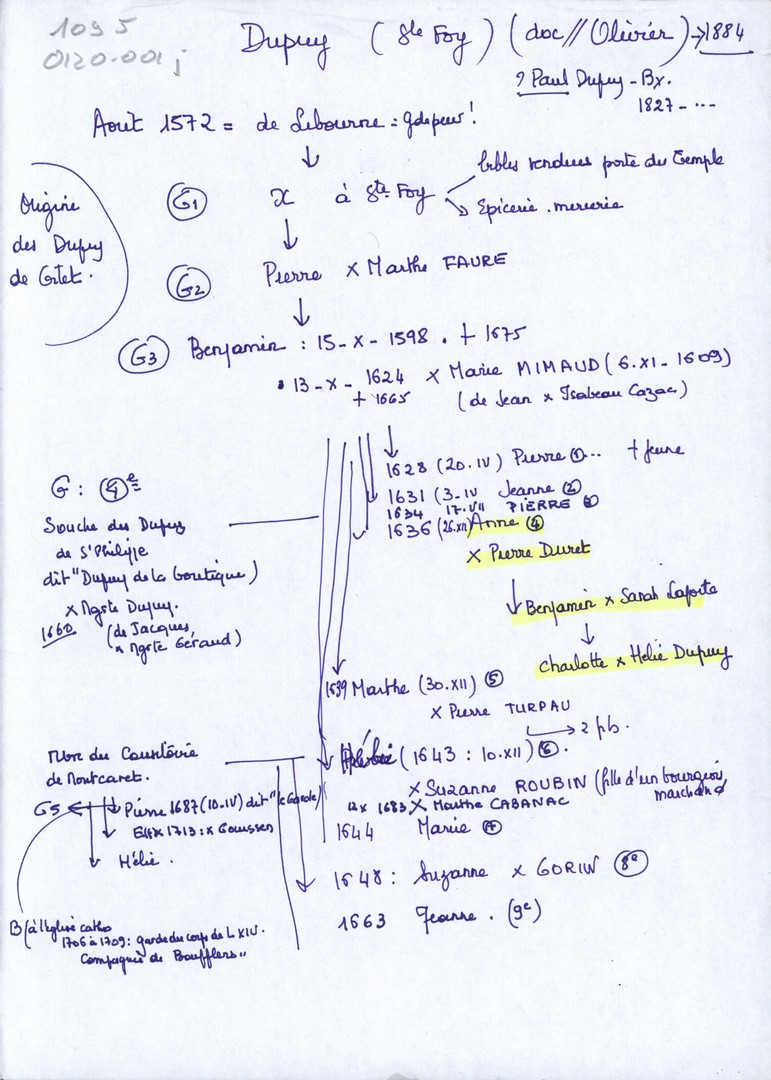 1095
0120-001 j
Dupuy (Ste Foy) (doc // Olivier) → 1884
? Paul Dupuy - Bx.
1827 - ...
Août 1572 = de Libourne : gde peur !
↓
Origine
des Dupuy
de
G1 x à Ste Foy
bibles vendues porte du Temple
→ Epicerie . mercerie
↓
G2 Pierre x Marthe FAURE
↓
G3 Benjamin : 15 - X - 1598 . + 1675
• 13 - X - 1624 x Marie MIMAUD (6. XI - 1609)
+ 1665 (de Jean x Isabeau Cazac)
1628 (20. IV) Pierre ①... + jeune
1631 (3 - IV Jeanne ②
1634 17. VII PIERRE ③
1636 (26. XII) Anne ④
x Pierre Duret
↓ Benjamin x Sarah Laforte
↓
Charlotte x Hélie Dupuy
G : 4e
Souche des Dupuy
de St Philippe
dit "Dupuy de la boutique)
x Mgrte Dupuy.
1660 (de Jacques
x Mgrte Géraud)
1639 Marthe (30. XII) ⑤
x Pierre TURPAU
→ 2 pb.
(1643 : 10. XII) ⑥.
x Suzanne ROUBIN (fille d'un bourgeois,
marchand
12x 1683 x Marthe CABANAC
de Montcaret.
G5 ← ↓ Pierre 1687 (10. IV) dit "le Garde)
1713 : x Goussen
Hélie .
1644 Marie ⑦
1648 : Suzanne x GORIN (8e)
1663 Jeanne . (9e)
B (à l'église catho
1706 à 1709 : garde du corps de L XIV.
Compagnie de Boufflers "